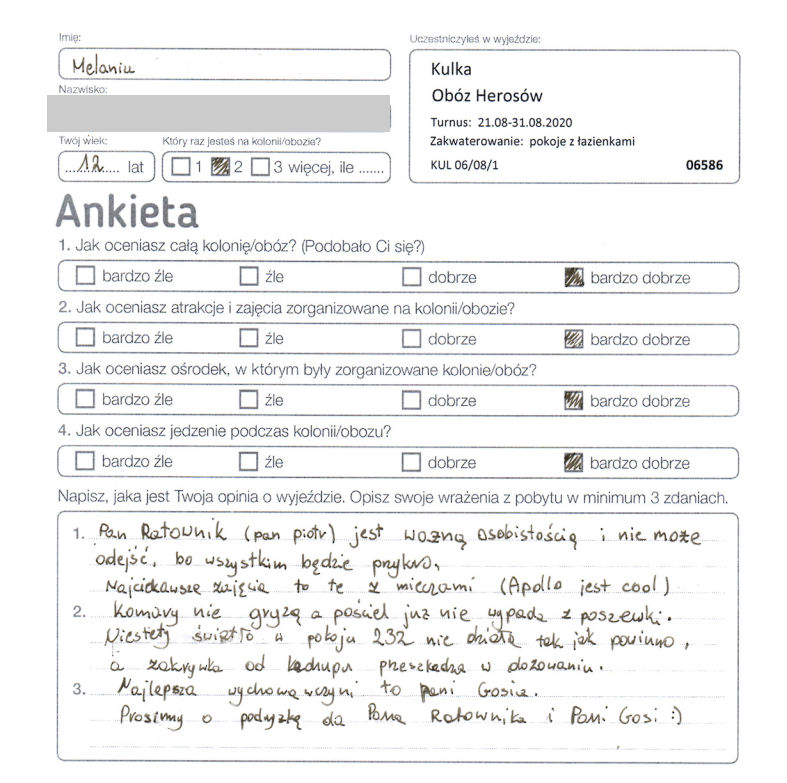 Imię:
Melania
Nazwisko:
Twój wiek:
12 lat
Który raz jesteś na kolonii/obozie?
1 2 3 więcej, ile .......
Uczestniczyłeś w wyjeździe:
Kulka
Obóz Herosów
Turnus: 21.08-31.08.2020
Zakwaterowanie: pokoje z łazienkami
KUL 06/08/1 06586
Ankieta
1. Jak oceniasz całą kolonię/obóz? (Podobało Ci się?)
bardzo źle źle dobrze bardzo dobrze
2. Jak oceniasz atrakcje i zajęcia zorganizowane na kolonii/obozie?
bardzo źle źle dobrze bardzo dobrze
3. Jak oceniasz ośrodek, w którym były zorganizowane kolonie/obóz?
bardzo źle źle dobrze bardzo dobrze
4. Jak oceniasz jedzenie podczas kolonii/obozu?
bardzo źle źle dobrze bardzo dobrze
Napisz, jaka jest Twoja opinia o wyjeździe. Opisz swoje wrażenia z pobytu w minimum 3 zdaniach.
1. Pan Ratownik (pan piotr) jest ważną osobistością i nie może
odejść, bo wszystkim będzie przykro,
Najciekawsze zajęcia to te z mieczami (Apollo jest cool)
2. Komary nie gryzą a pościel już nie wypada z poszewki.
Niestety światło w pokoju 232 nie działa tak jak powinno,
a zakrywka od kechupu przeszkadza w dozowaniu.
3. Najlepszą wychowawczyni to pani Gosia.
Prosimy o podwyżkę dla Pana Ratownika i Pani Gosi :)